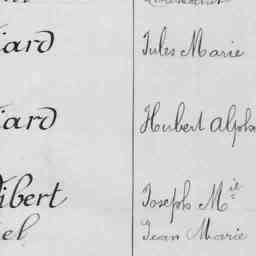 iard Jules Marie
iard Hubert Alpho
ibert Joseph M^ie
el Jean Marie